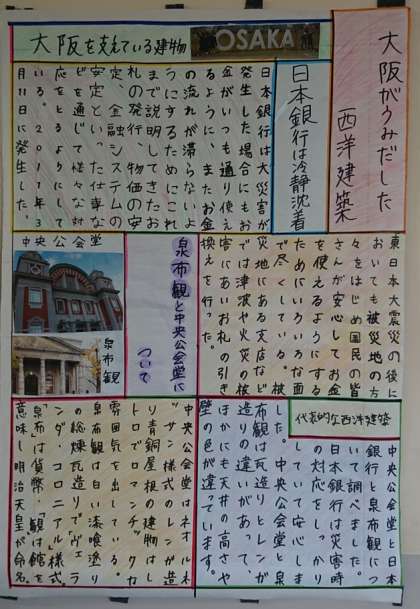 大阪がうみだした
西洋建築
大阪を支えている建物
OSAKA
日本銀行は冷静沈着
日本銀行は大災害が
発生した場合にもお
金がいつも通り使え
るように、またお金
の流れが滞らないよ
うにするためにこれ
まで説明してきたお
札の発行、物価の安
定、金融システムの
安定といった仕事な
どを通じて様々な対
応をとるようにして
いる。2011年3
月11日に発生した、
東日本大震災の後に
おいても被災地の方
々をはじめ国民の皆
さんが安心してお金
を使えるようにする
ためにいろいろな面
で尽くしている。被
災地にある支店など
では津波や火災の被
害にあいお札の引き
換えを行った。
泉布観と中央公会堂に
ついて
中央公会堂
泉布観
中央公会堂はネオルネ
ッサン様式のレンガ造
り青銅屋根の建物はレ
トロでロマンチックな
雰囲気を出している。
泉布観は白い漆喰塗り
の総煉瓦造りでヴェラ
ンダ・コロニアル様式。
「泉布」は貨幣、「観」は館を
意味し明治天皇が命名。
代表的な西洋建築
中央公会堂と日本
銀行と泉布観につ
いて調べました。
日本銀行は災害時
の対応をしっかり
していて安心しま
した。中央公会堂と泉
布観は瓦造りとレンガ
造りの違いがあって、
ほかにも天井の高さや
壁の色が違っています。